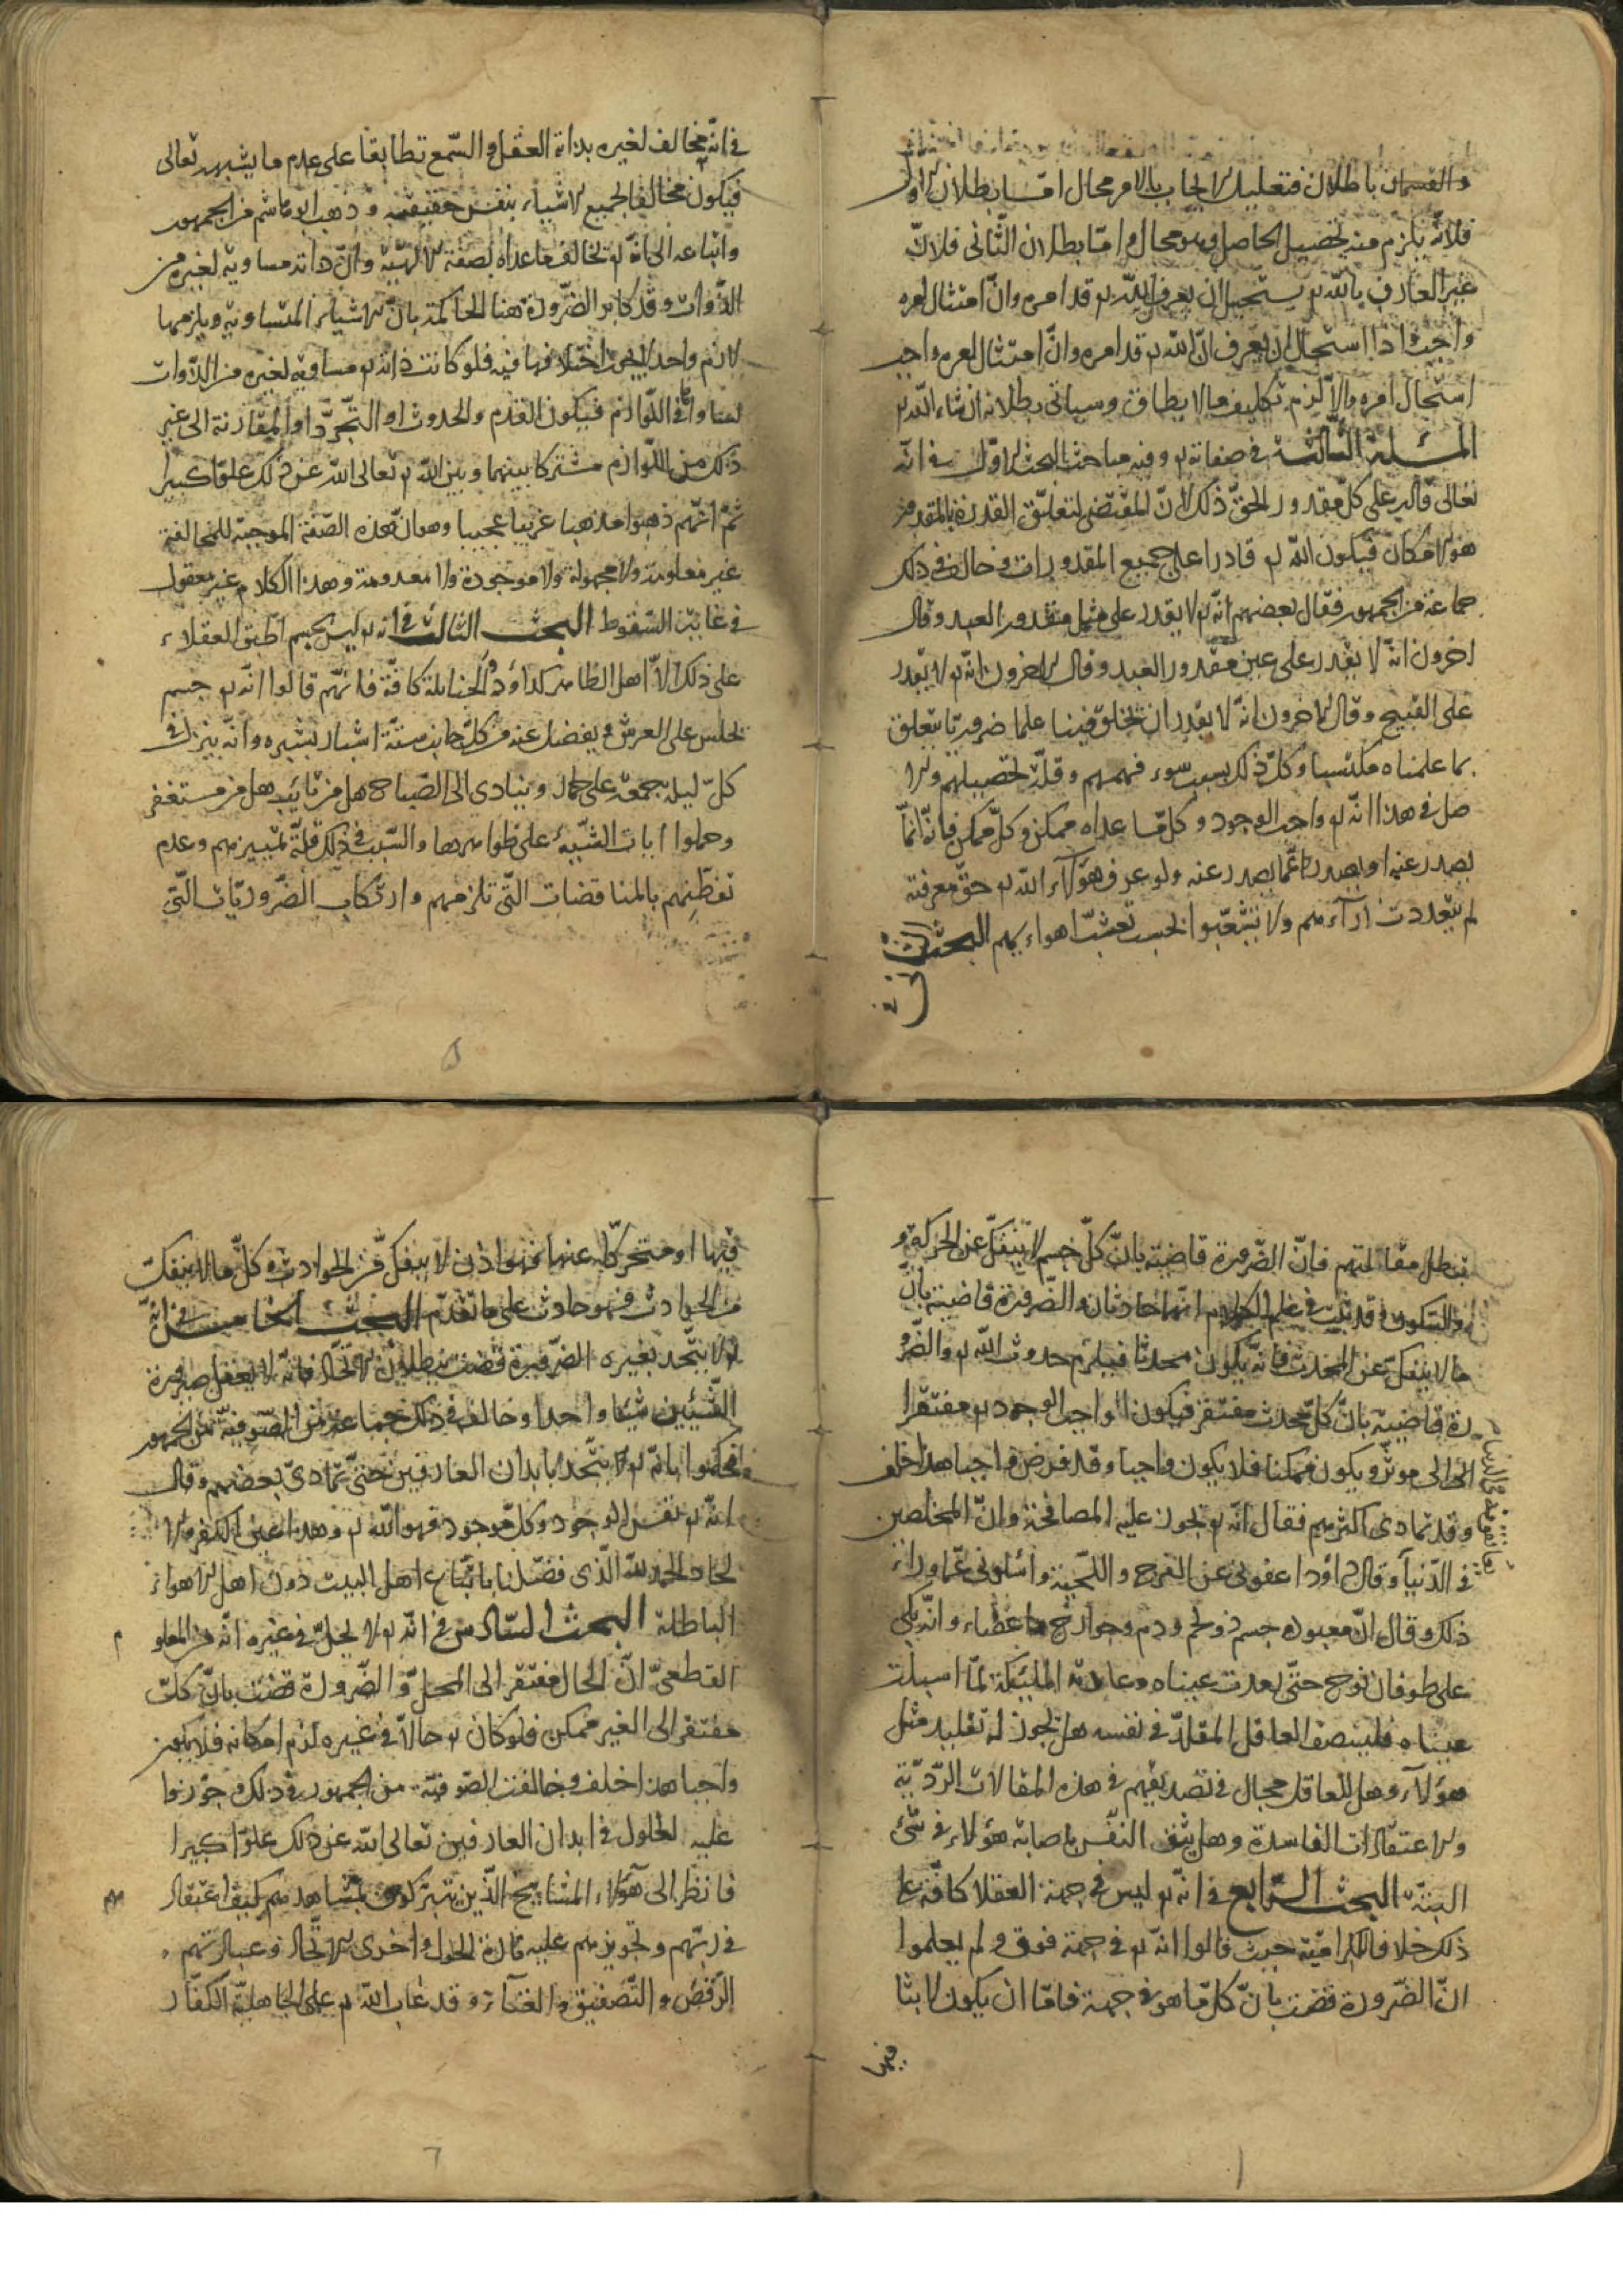 والقسمان باطلان فتعليل الايجاب بالامر محال اما بطلان الاول
فلانّه يلزم منه تحصيل الحاصل وهو محال واما بطلان الثّانى فلانّ
غير العارف باللّه تع يستحيل ان يعرف انّ اللّه تع قد امره وانّ امتثال امره
واجب واذا استحال ان يعرف انّ اللّه تع قد امره وانّ امتثال امره واجب
استحال امره والاّ لزم تكليف ما لا يطاق وسياتى بطلانه ان شاء اللّه تع
المسئلة الثّالثة فى صفاته تع وفيه مباحث البحث الاوّل فى انّه
تعالى قادر على كلّ مقدور الحقّ ذلك لانّ المقتضى لتعلّق القدرة بالمقدور
هو الامكان فيكون اللّه تع قادرا على جميع المقدورات وخالف فى ذلك
جماعة من الجمهور فقال بعضهم انّه تع لا يقدر على مثل مقدور العبد وقال
اخرون انّه لا يقدر على عين مقدور العبد وقال الاخرون انّه تع لا يقدر
على القبيح وقال الاخرون انّه لا يقدر ان يخلق فينا علما ضروريّا يتعلق
بما علمناه مكتسبا وكلّ ذلك بسبب سوء فهمهم وقلّة تحصيلهم والا
صل فى هذا انّه تع واجب الوجود وكلّ ما عداه ممكن وكلّ ممكن فانّه انّما
يصدر عنه او يصدر عمّا يصدر عنه ولو عرف هؤلاء اللّه تع حقّ معرفته
لم يتعدّدت آراءهم ولا تشعّبوا بحسب تعشّب اهواءهم البحث الثانى فى
فى انّه مخالف لغيره بذاته العقل والسّمع تطابقا على عدم ما يشبهه تعالى
فيكون مخالفا لجميع الاشياء بنفس حقيقته وذهب ابو هاشم من الجمهور
واتباعه الى انّه تع يخالف ما عداه بصفة الالهيّة وانّ ذاته مساوية لغيره من
الذّوات وقد كابر الضّرورة هنا الحاكمة بانّ الاشياء المتساوية يلزمها
لازم واحد لا يجوز اختلافها فيه فلو كانت ذاته تع مساوية لغيره من الذّوات
لساواها فى اللّوازم فيكون القدم والحدوث او التّجرّد او المقارنة الى غير
ذلك من اللّوازم مشتركا بينهما وبين اللّه تع تعالى اللّه عن ذلك علوّا كبيرا
ثمّ انّهم ذهبوا مذهبا غريبا عجيبا وهو انّ هذه الصّفة الموجبة للمخالفة
غير معلومة ولا مجهولة ولا موجودة ولا معدومة وهذا الكلام غير معقول
فى غاية السّقوط البحث الثالث فى انه تع ليس بجسم اطبق العقلاء
على ذلك الاّ اهل الظاهر كداؤد والحنابلة كافّة فانّهم قالوا انّه تع جسم
يجلس على العرش ويفضل عنه من كلّ جانب ستّة اشبار بشبره وانّه ينزل فى
كلّ ليلة جمعة على حمار وينادى الى الصّباح هل من تائب هل من مستغفر
وحملوا ايات التشبيه على ظواهرها والسّبب فى ذلك قلّة تمييزهم وعدم
تفطّنهم بالمناقضات التّى تلزمهم وارتكاب الضّروريّات الّتى
تبطل مقالتهم فانّ الضّرورة قاضية بانّ كلّ جسم لا ينفكّ عن الحركة و
والسّكون وقد ثبت فى علم الكلام انّهما حادثان والضّرورة قاضية بانّ
ما لا ينفكّ عن المحدث فانّه يكون محدثا فيلزم حدوث اللّه تع والضّرو
رة قاضية بانّ كلّ محدث مفتقر فيكون الواجب الوجود تع مفتقرا
الى مؤثّر ويكون ممكنا فلا يكون واجبا وقد فرض واجبا هذا خلف
وقد تمادى اكثرهم فقال انّه تع يجوز عليه المصافحة وانّ المخلصين
فى الدّنيا وقال داؤد اعفونى عن الفرج واللّحية واسئلونى عمّا وراء
ذلك وقال انّ معبوده جسم ذو لحم ودم وجوارح واعضاء وانّه بكى
على طوفان نوح حتّى رمدت عيناه وعادته الملئكة لمّا اسبلت
عيناه فلينصف العاقل المقلّد فى نفسه هل يجوز له تقليد مثل
هؤلاء وهل للعاقل مجال فى تصديقهم فى هذه المقالات الرّديّة
والاعتقادات الفاسدة وهل يثق النّفس باصابة هؤلاء فى شئ
البتّة البحث الرّابع فى انّه تع ليس فى جهة العقلا كافّة على
ذلك خلافا للكراميّة حيث قالوا انّه تع فى جهة فوق ولم يعلموا
انّ الضّرورة قضت بانّ كلّ ما هو فى جهة فامّا ان يكون لابثا
فيها
فيها او متحرّكا عنها فهو اذن لا ينفكّ من الحوادث وكلّ ما لا ينفكّ
من الحوادث فهو حادث على ما تقدّم البحث الخامس فى انّه
تع لا يتّحد بغيره الضّرورة قضت ببطلان الاتّحاد فانّه لا يعقل صيرورة
الشّيئين شيئا واحدا وخالف فى ذلك جماعة من الصّوفيّة من الجمهور
فحكموا بانّه تع يتّحد بابدان العارفين حتّى تمادى بعضهم وقال
انّه تع نفس الوجود وكلّ موجود فهو اللّه تع وهذا عين الكفر والا
لحاد الحمد للّه الّذى فضّلنا باتّباع اهل البيت دون اهل الاهواء
الباطلة البحث السّادس فى انّه تع لا يحلّ فى غيره انّه من المعلو
القطعىّ انّ الحالّ مفتقر الى المحلّ والضّرورة قضت بانّ كلّ
مفتقر الى الغير ممكن فلو كان تع حالاّ فى غيره لزم امكانه فلا يكون
واجبا هذا خلف وخالفت الصّوفيّة من الجمهور فى ذلك وجوّزوا
عليه الحلول فى ابدان العارفين تعالى اللّه عن ذلك علوّا كبيرا
فانظر الى هؤلاء المشايخ الّذين يتبرّكون بمشاهدهم كيف اعتقاد
فى ربّهم وتجويزهم عليه تارة الحلول واخرى الاتّحاد وعبادتهم
الرّقص والتّصفيق والغناء وقد عاب اللّه تع على الجاهليّة الكفّار